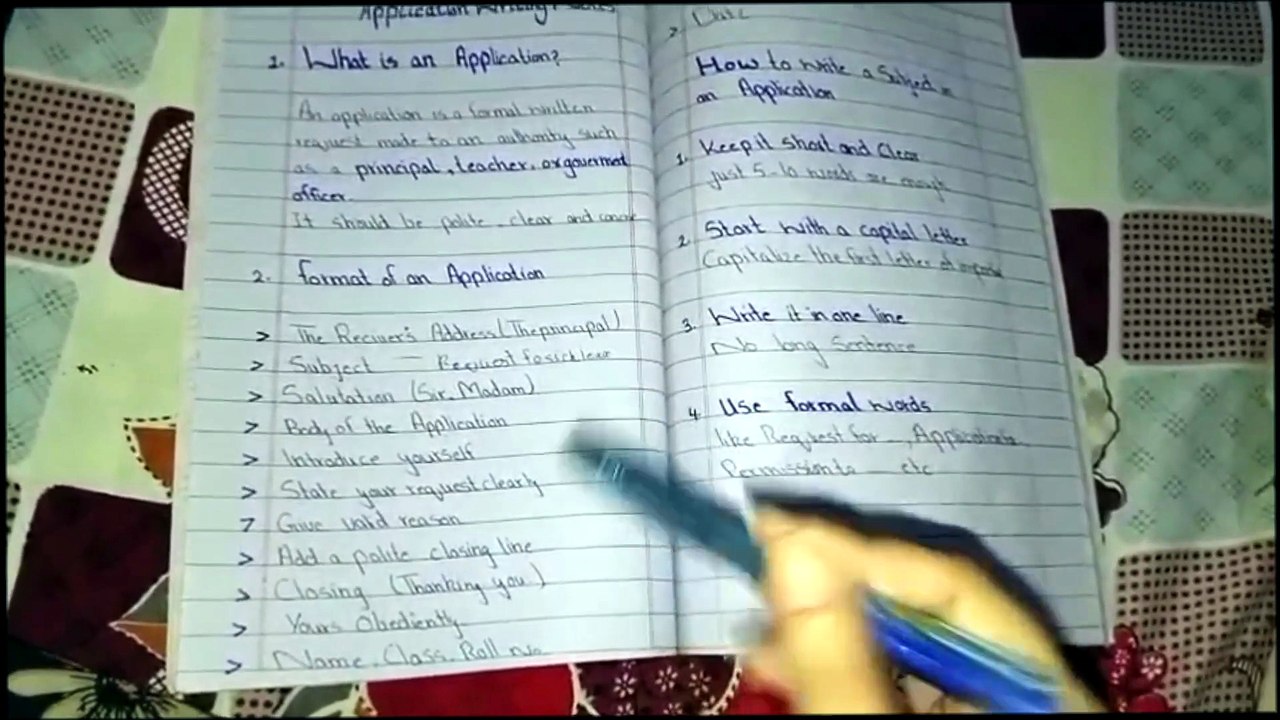 Application Writing
1. What is an Application?
An application is a formal written
request made to an authority such
as a principal, teacher, or goverment
officer.
It should be polite, clear and concise
2. format of an Application
> The Reciver's Address (The principal)
> Subject — Request fo sick leave
> Salutation (Sir, Madam)
> Body of the Application
> Introduce yourself
> State your request clearly
> Give valid reason
> Add a polite closing line
> Closing (Thanking you)
> Yours Obediently
> Name, Class, Roll No
> Date
How to write a Subject in
an Application
1. Keep it short and Clear
just 5-10 words are enough
2. Start with a capital letter
Capitalize the first letter of
3. Write it in one line
No long Sentence
4. Use formal words
like Request for __, Application
Permission to __ etc